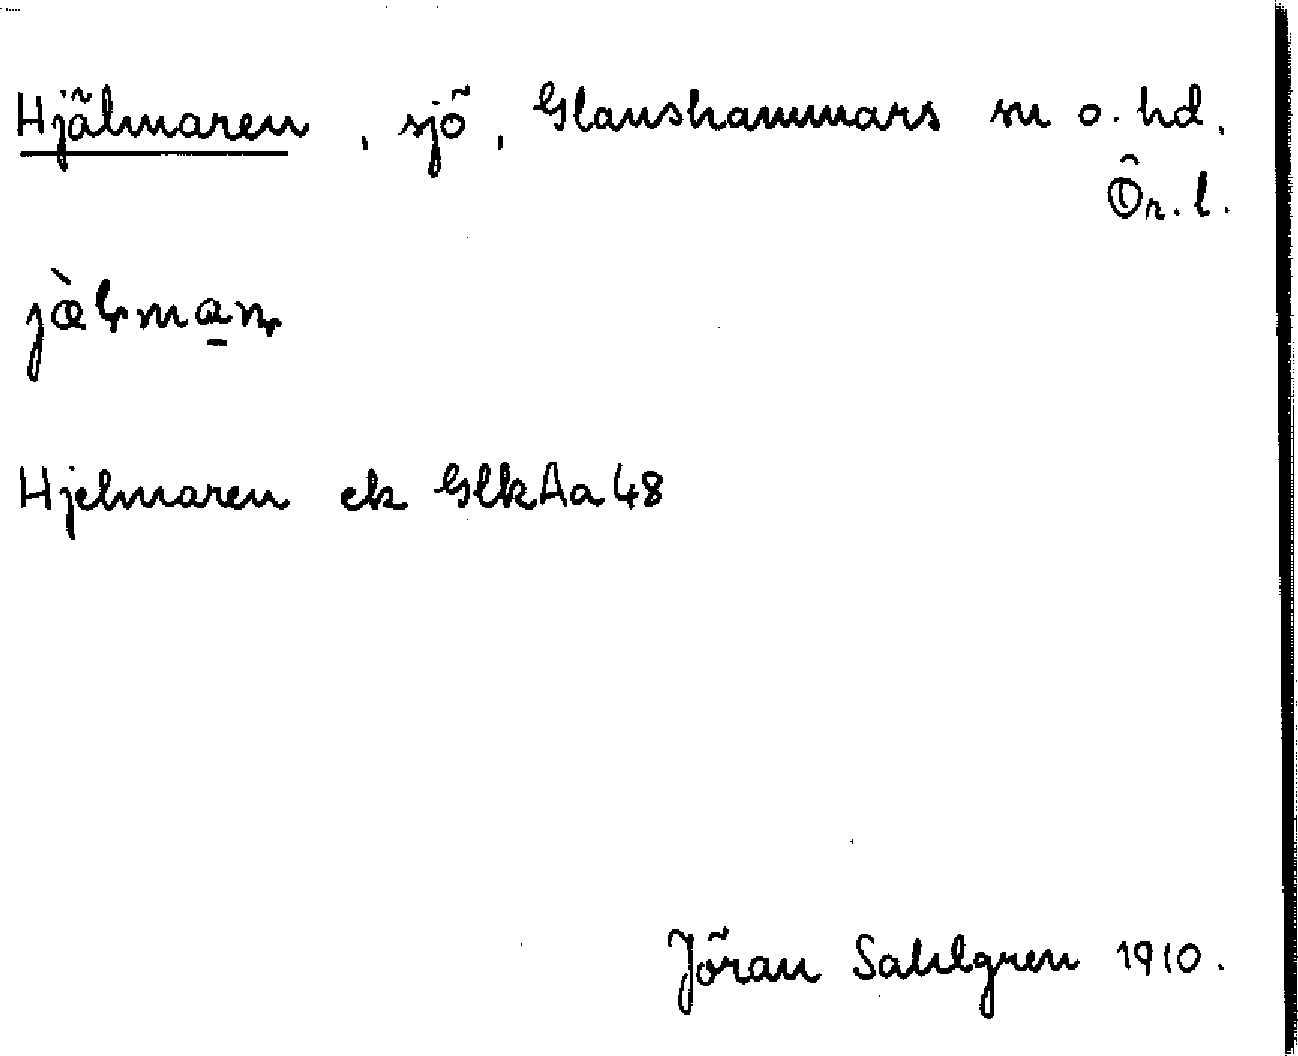 Hjälmaren, sjö, Glanshammars sn o. hd.
Ör. l.
jæ̀lman
Hjelmaren ek GlkAa 48
Jöran Sahlgren 1910.